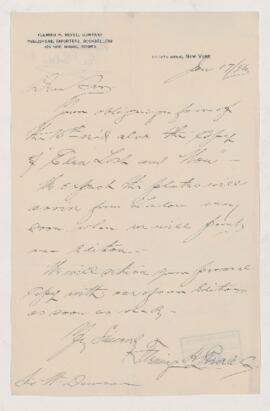 FLEMING H. REVELL COMPANY
PUBLISHERS, IMPORTERS, BOOKSELLERS
FIFTH AVENUE, NEW YORK
Jan 17/
Dear Sir
Your obliging favor of
the 15th rec'd also the copy
of " Lost and Won" -
We expect the plates will
from London very
soon when we will print
our edition -
We will return your personal
copy with one of our editions
as soon as ready -
Yrs Sincerely
Fleming H Revell Co
W. Dawson